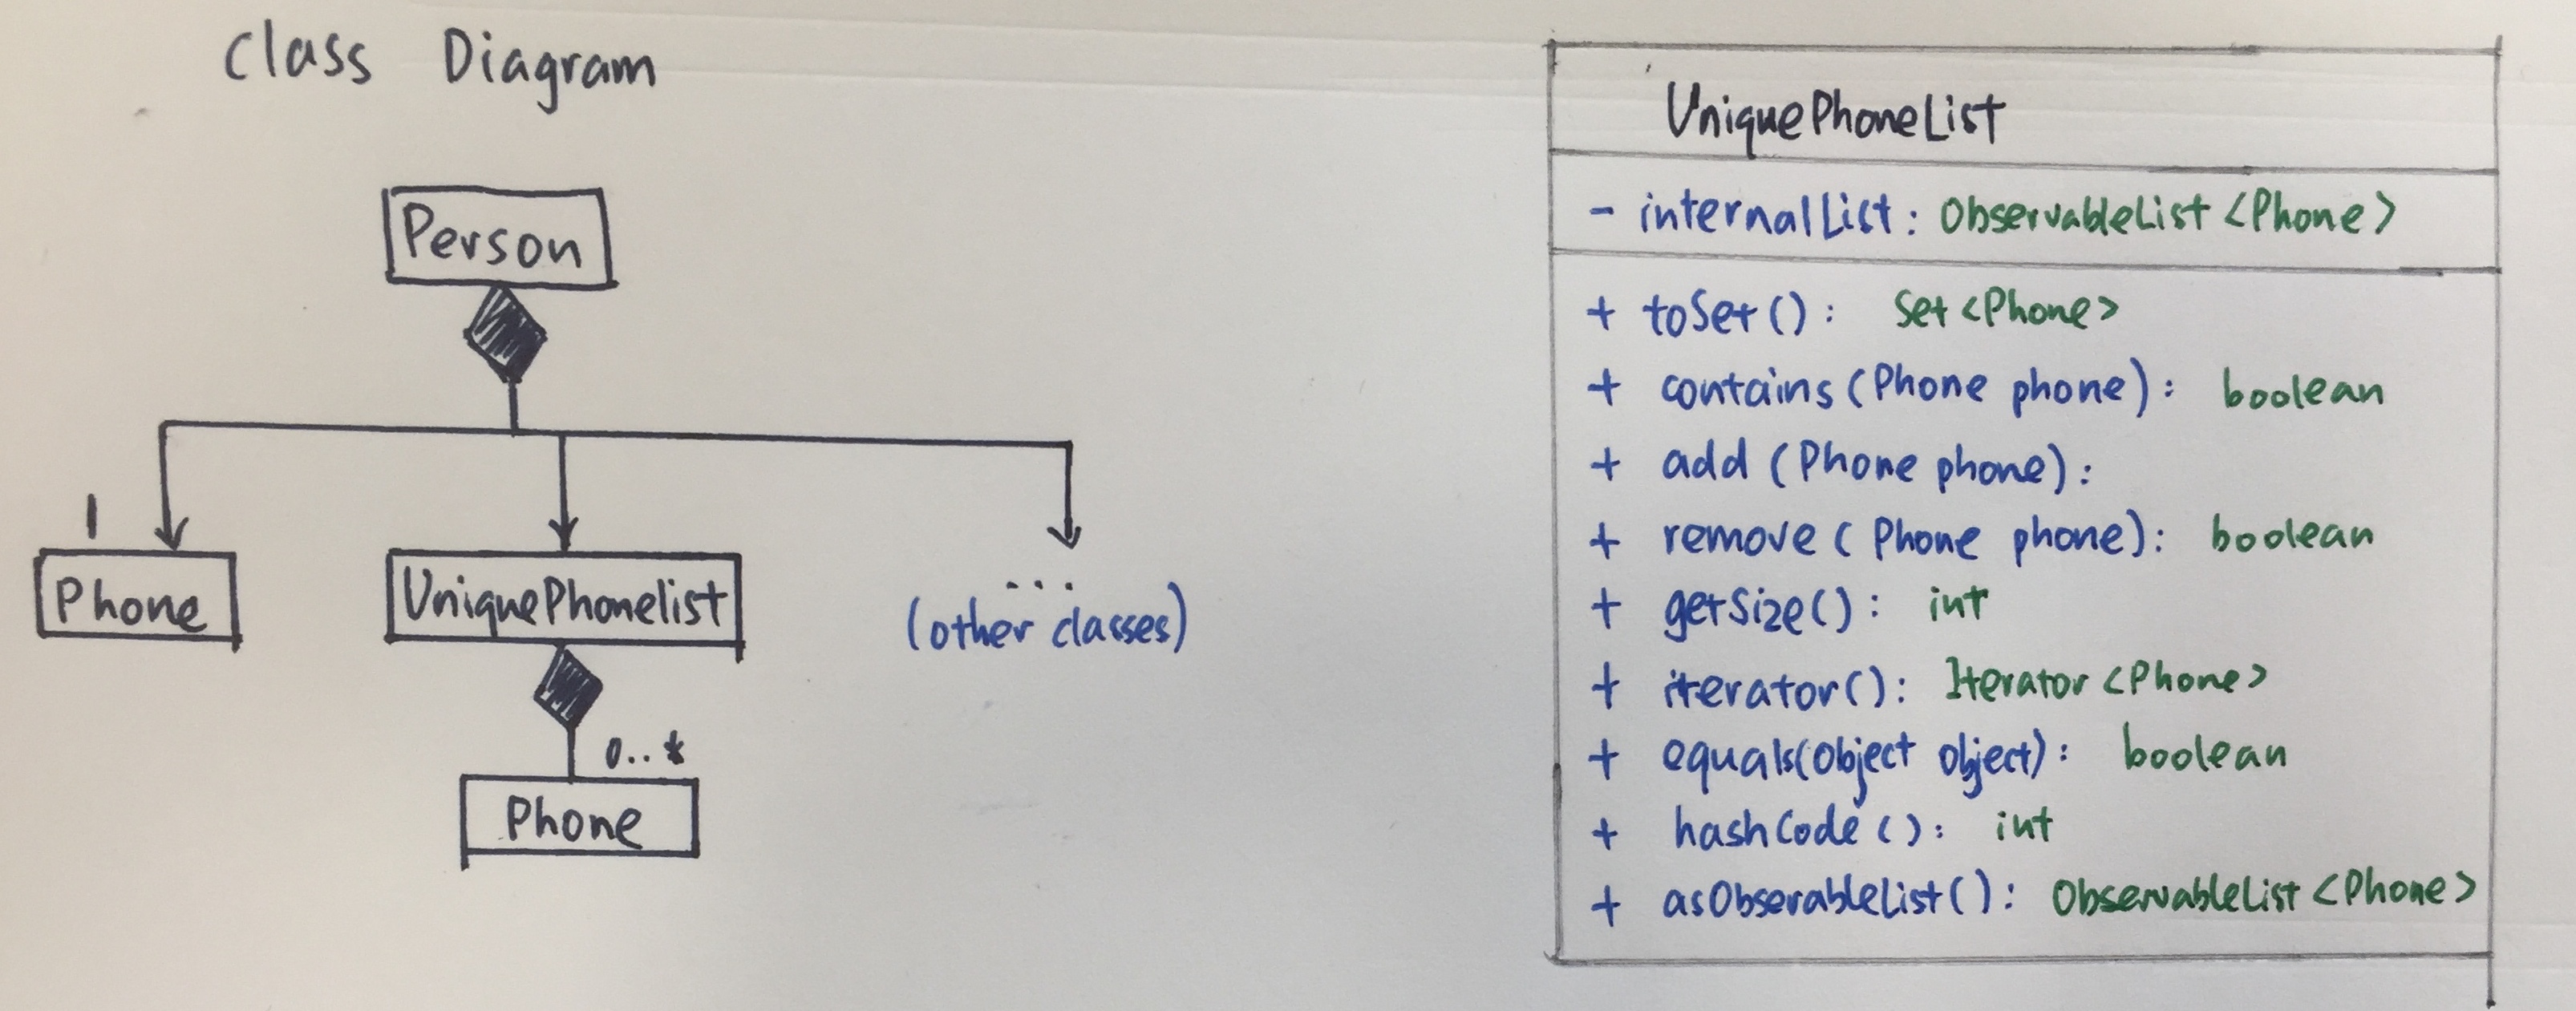 Class Diagram
Person
1
Phone
UniquePhonelist
...
(other classes)
0..*
Phone
UniquePhoneList
- internalList: ObservableList <Phone>
+ toSet(): Set <Phone>
+ contains (Phone phone): boolean
+ add (Phone phone):
+ remove ( Phone phone): boolean
+ getSize(): int
+ iterator(): Iterator <Phone>
+ equals(Object object): boolean
+ hashCode (): int
+ asObserableList(): ObservableList <Phone>